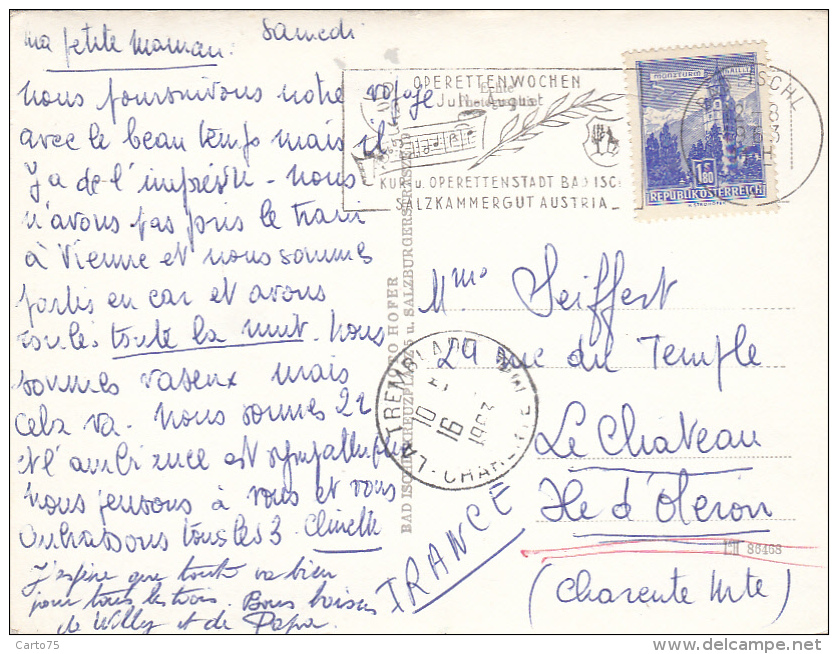 Samedi
Ma petite maman.
Nous poursuivons notre voyage
avec le beau temps mais il
y a de l'imprévu - nous
n'avons pas pris le train
à Vienne et nous sommes
partis en car et avons
roulés toute la nuit. Nous
sommes vaseux mais
cela va. Nous sommes 22
et l'ambiance est sympathique
Nous pensons à vous et vous
embrassons tous les 3.
J'espère que toute va bien
pour tous les trois. Bons baisers
de Willy et de Papa.
OPERETTENWOCHEN
Juli - August
KUR- u. OPERETTENSTADT BAD ISCHL
SALZKAMMERGUT AUSTRIA
Echte
Photographie
MÜNZTURM HALL I. T.
1S80
REPUBLIK ÖSTERREICH
BAD ISCHL
PHOTO HOFER
BAD ISCHL, KREUZPLATZ 5 u. SALZBURGERSTRASSE
LA TREMBLADE
10 H
16
1963
CHARENTE
Mme Seiffert
29 rue du Temple
Le Chateau
Ile d'Oleron
(Charente Mte)
FRANCE
PH 86468
Carto75
www.delcampe.net